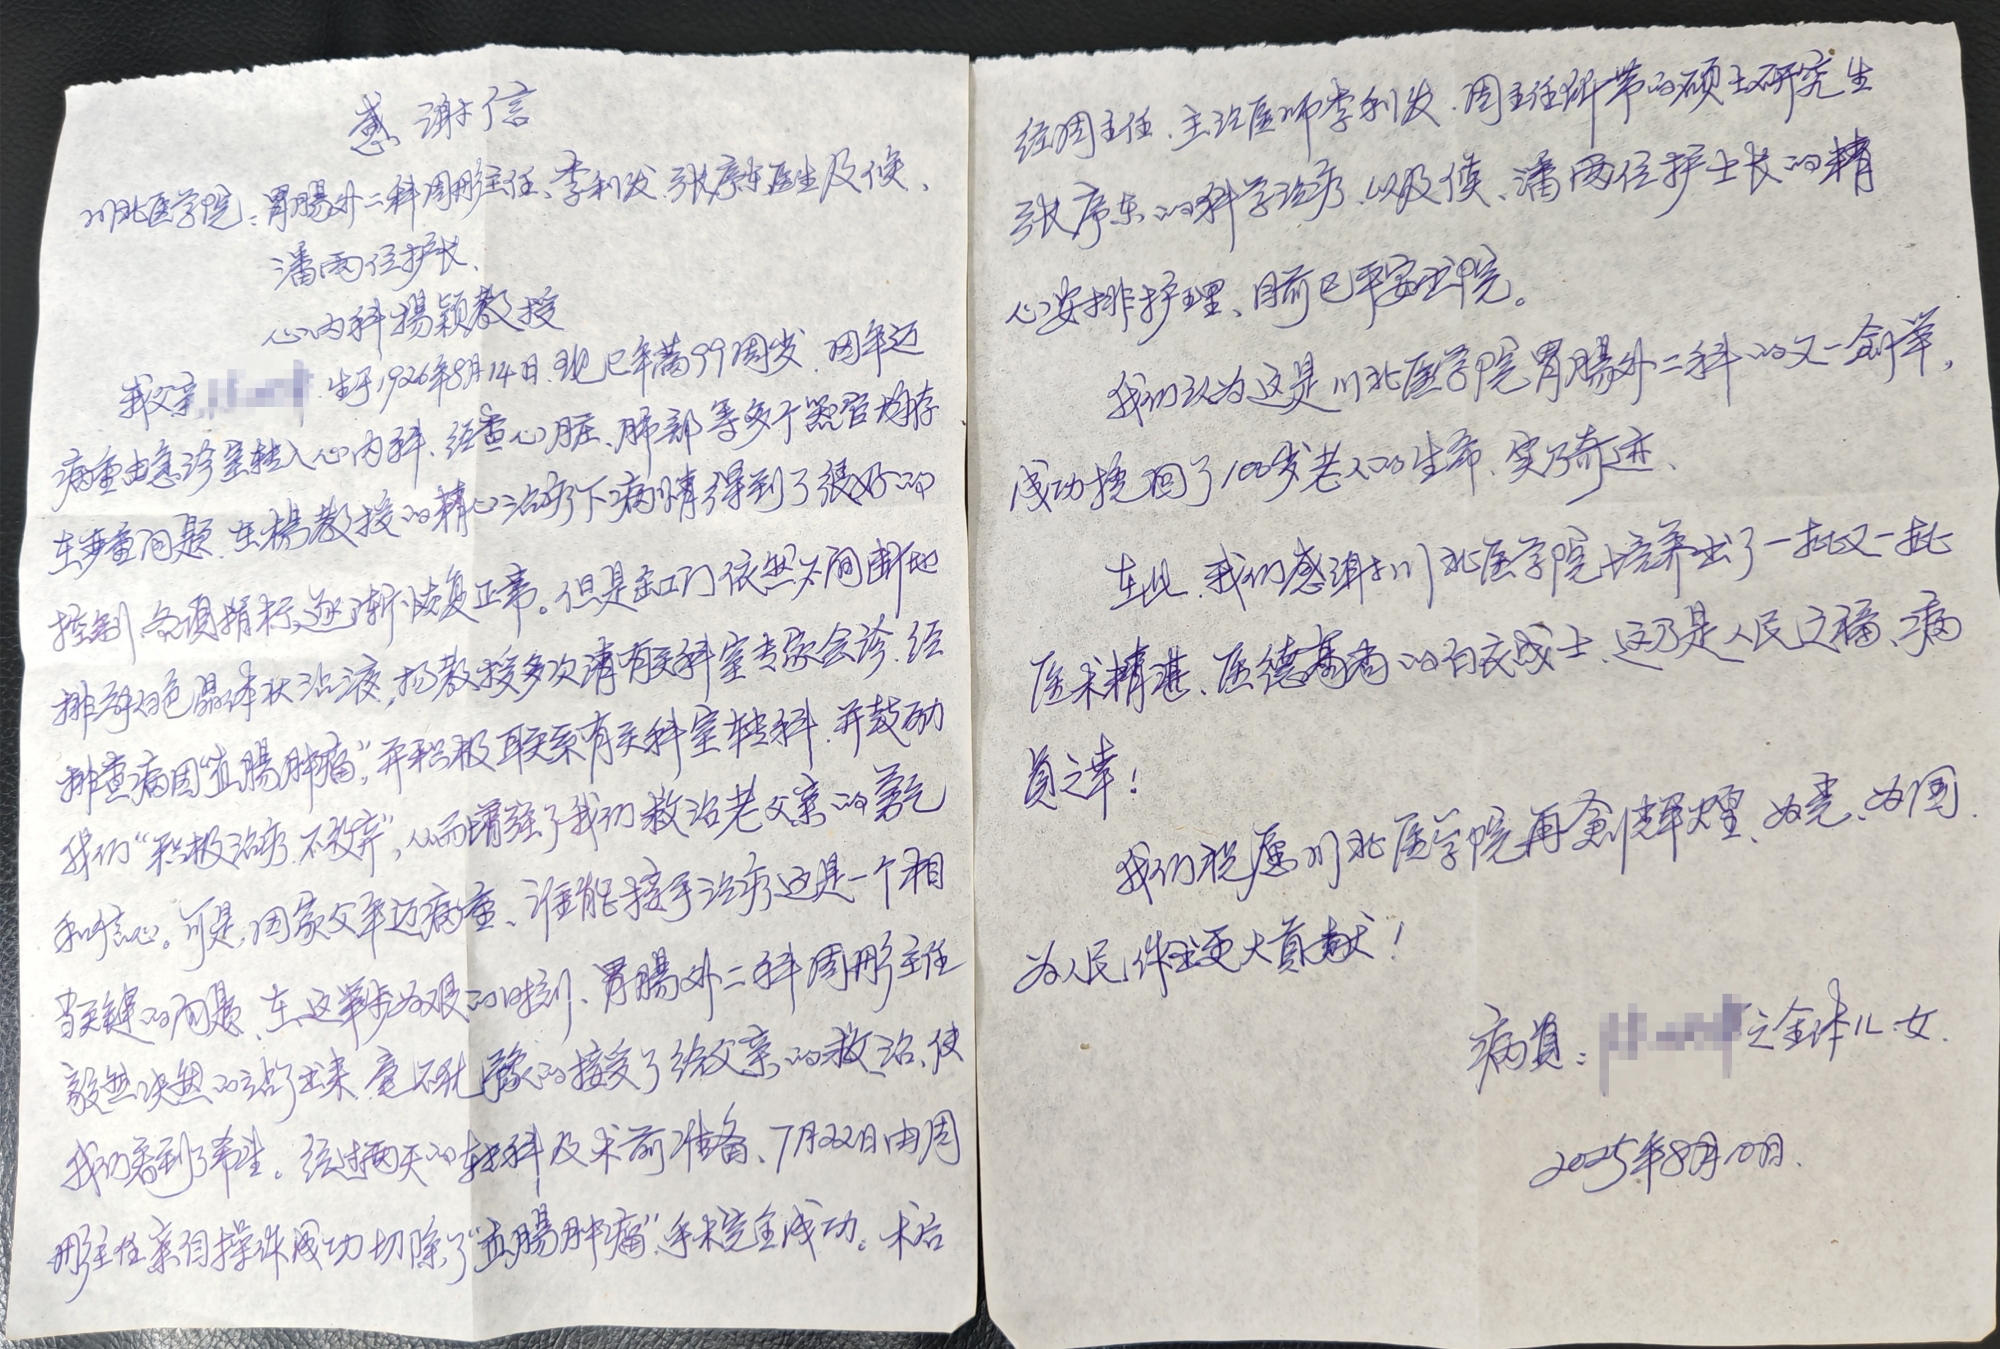 感谢信
川北医学院:胃腸外二科周彤主任、李利发、张序东医生及侯、
潘两位护长、
心内科楊颖教授
我父亲 生于1926年8月14日、现已年满99周岁、因年迈
病重由急诊室转入心内科、经查心脏、肺部等多个器官均存
在严重问题、在楊教授的精心治疗下病情得到了很好的
控制、各项指标逐渐恢复正常。但是肛门依然不间断地
排 色晶体状沾液,杨教授多次请有关科室专家会诊、经
排查病因"直腸肿瘤",并积极联系有关科室转科、并鼓励
我们"积极治疗、不放弃",从而增强了我们救治老父亲的勇气
和信心。可是,因家父年迈病重、谁能接手治疗这是一个相
当关键的问题、在这举步为艰的时刻、胃腸外二科周彤主任
毅然决然的站了出来、毫不犹豫的接受了给父亲的救治、使
我们看到了希望。经过两天的转科及术前准备、7月22日由周
彤主任亲自操作成功切除了"直腸肿瘤"、手术完全成功。术后
经周主任、主治医师李利发、周主任所带的硕士研究生
张序东的科学治疗、以及侯、潘两位护士长的精
心安排护理、目前已平安出院。
我们认为这是川北医学院胃腸外二科的又一创举,
成功挽回了100岁老人的生命、实乃奇迹、
在此、我们感谢川北医学院培养出了一批又一批
医术精湛、医德高尚的白衣战士、这乃是人民之福、病
员之幸!
我们祝愿川北医学院再创辉煌、为党、为国、
为人民作出更大贡献!
病员: 之全体儿女、
2025年8月10日、